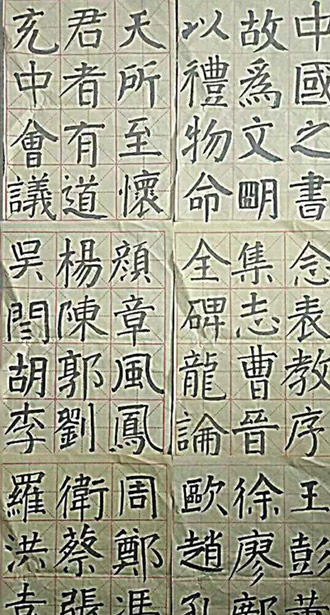 中國之書
故爲文明
以禮物命
天所至懷
君者有道
充中會議
念表教序
集志曹晉
全碑龍論
顔章風鳳
楊陳郭劉
吳閆胡李
王彭黃
徐廖
歐趙孔
周鄭馮
衛蔡張
羅洪